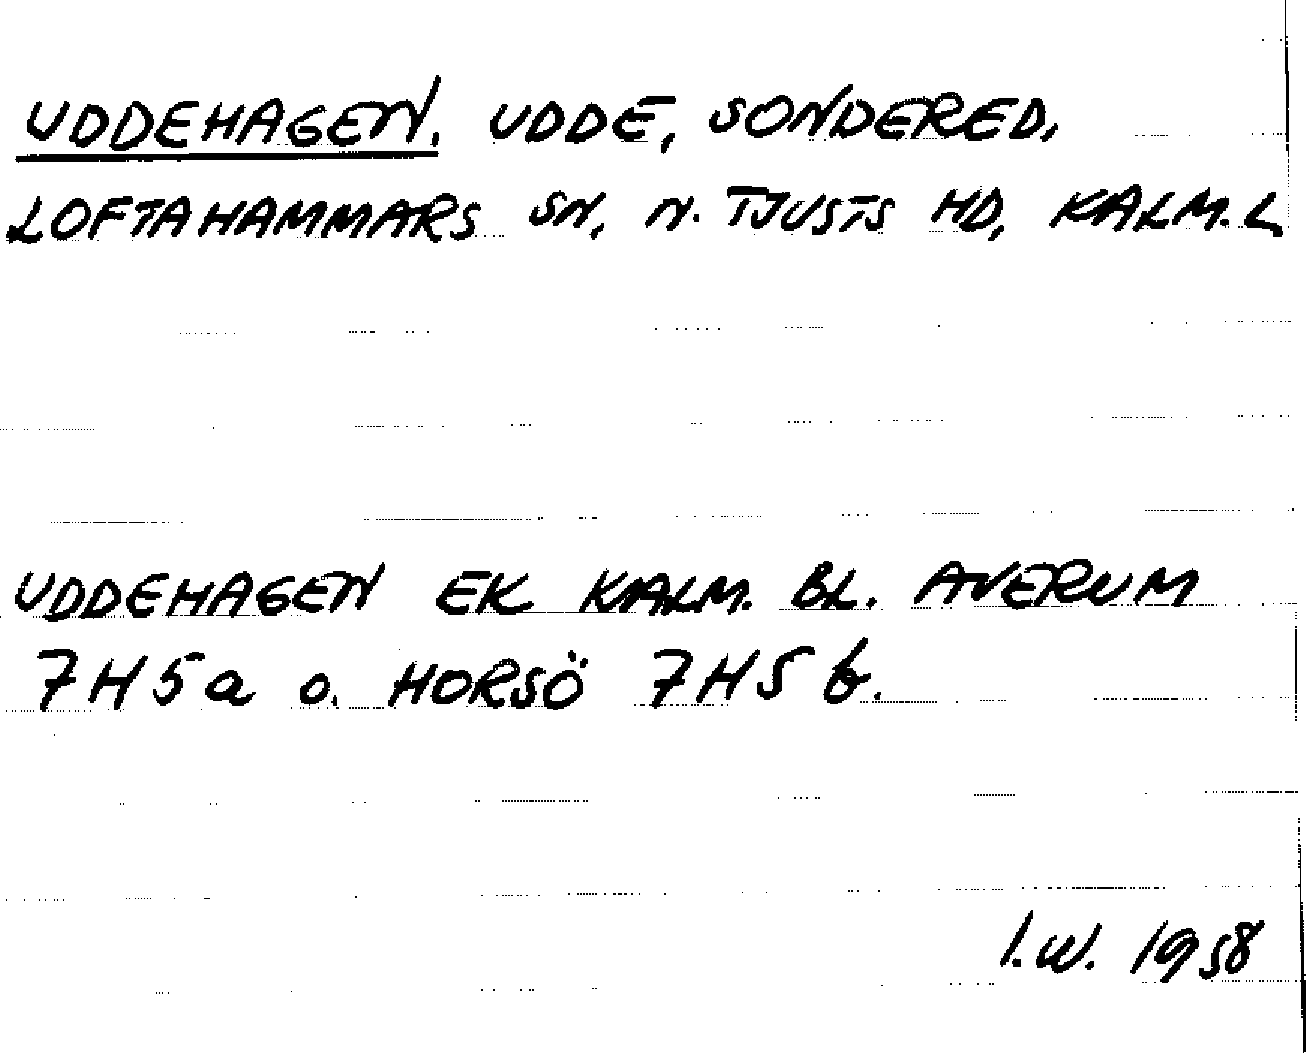 UDDEHAGEN. UDDE, SONDERED,
LOFTAHAMMARS SN, N. TJUSTS HD, KALM. L
UDDEHAGEN EK KALM. BL. AVERUM
7H5a o. HORSÖ 7H5b.
I.W. 1958